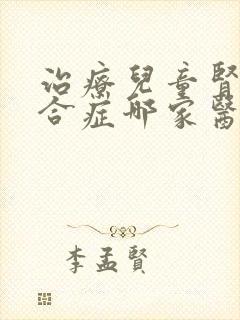 治療兒童腎
合症哪家醫
李孟賢